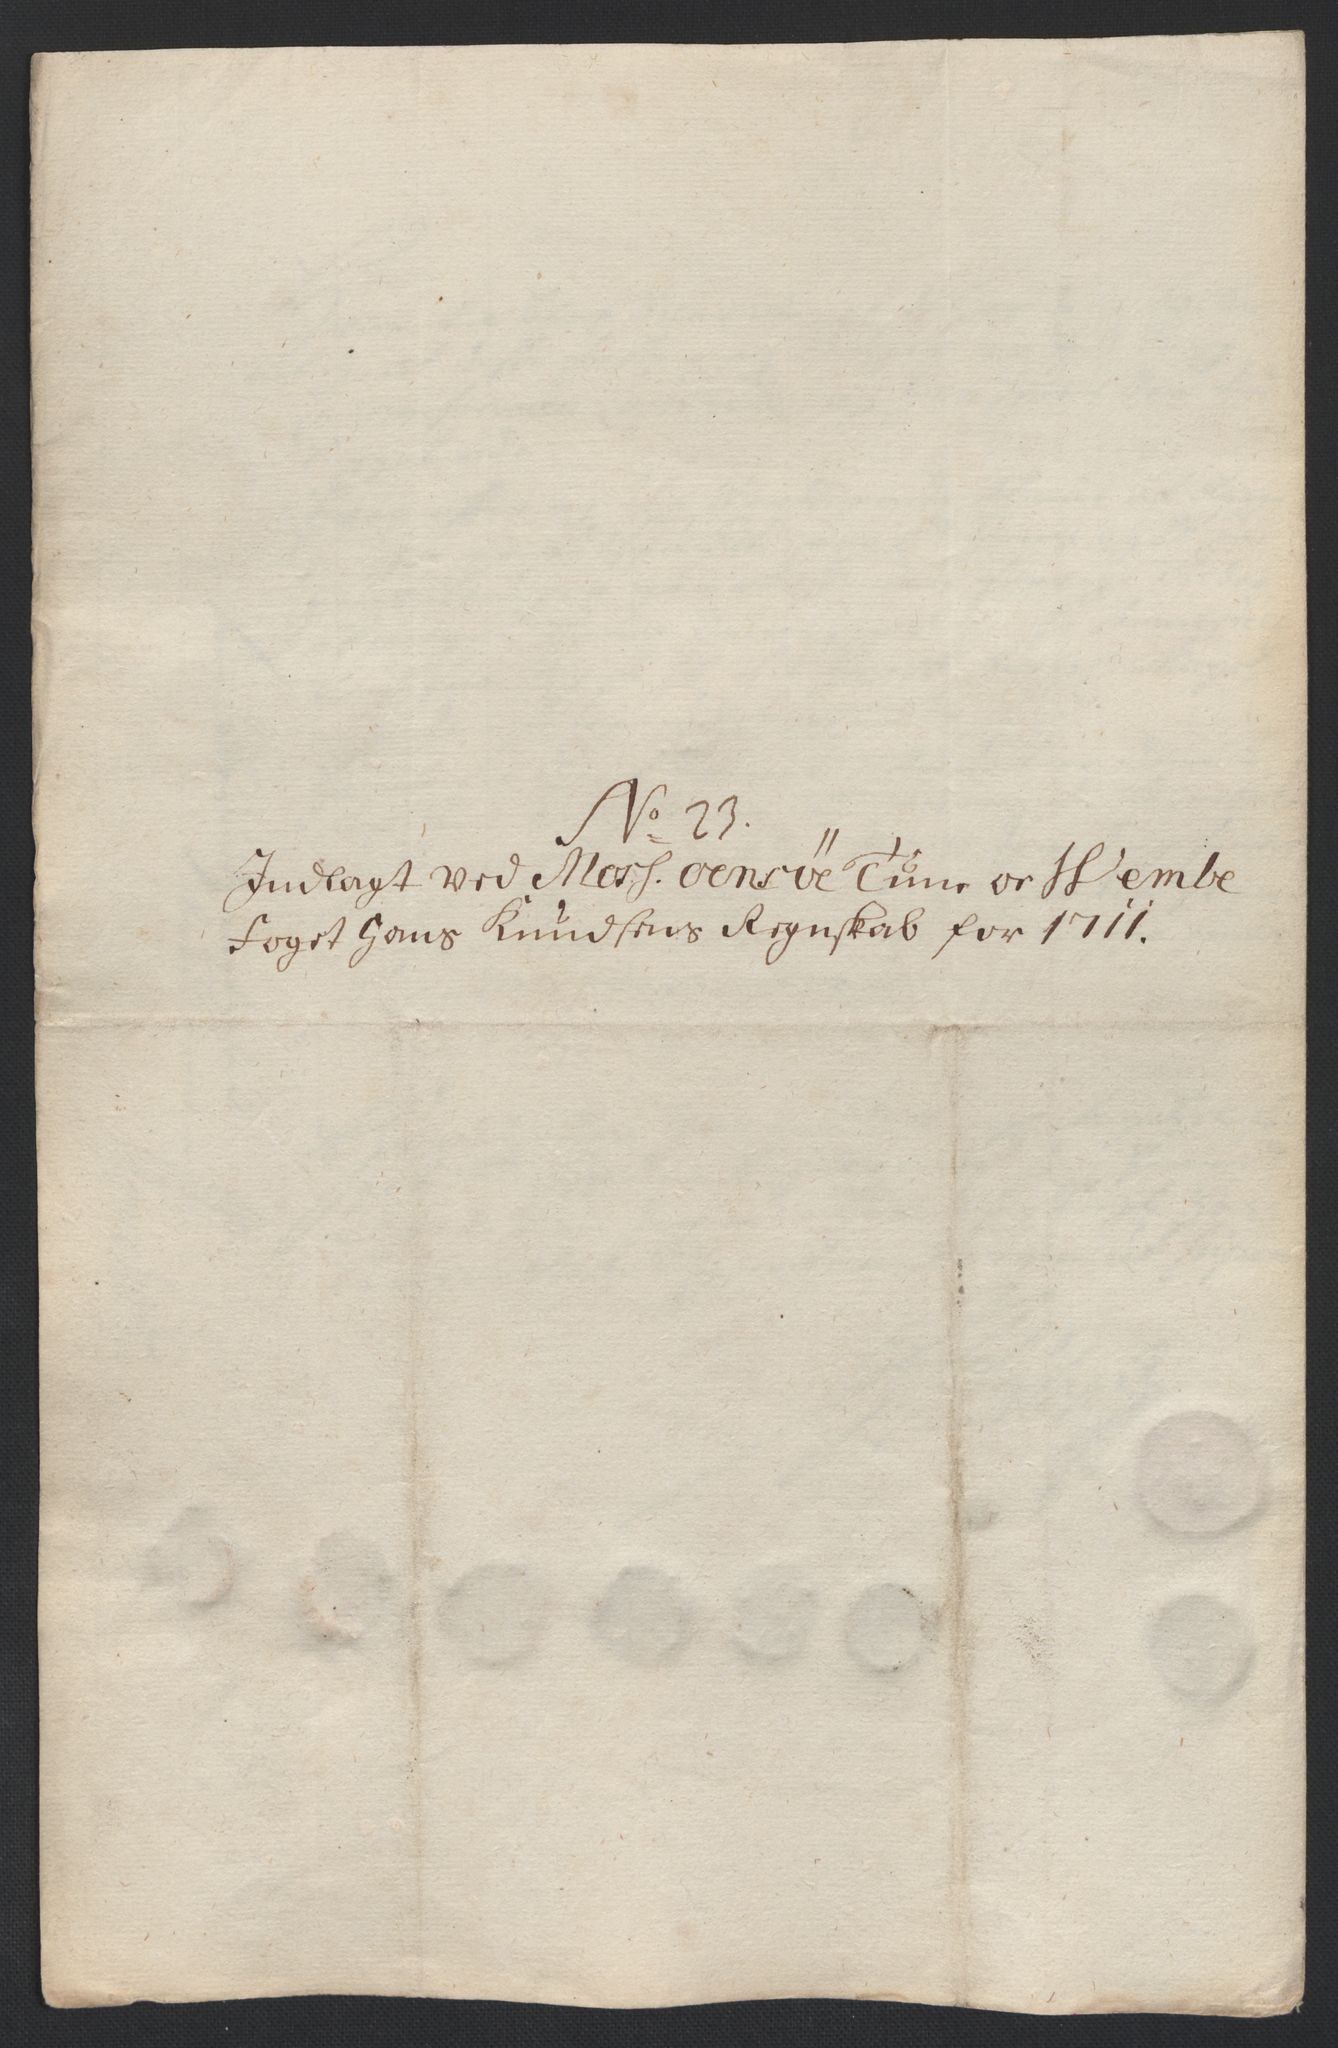 No 23.
Indlagt ved Moss. oensöe Tune oc W embe
Foget Hans Knudsens Regnskab for 1711.